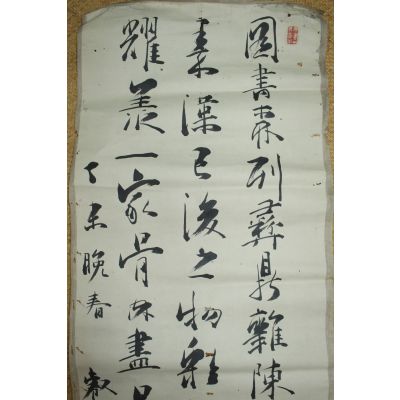 圖書森列彝鼎雜陳
秦漢已後之物
耀羨一家骨盡
丁未晚春